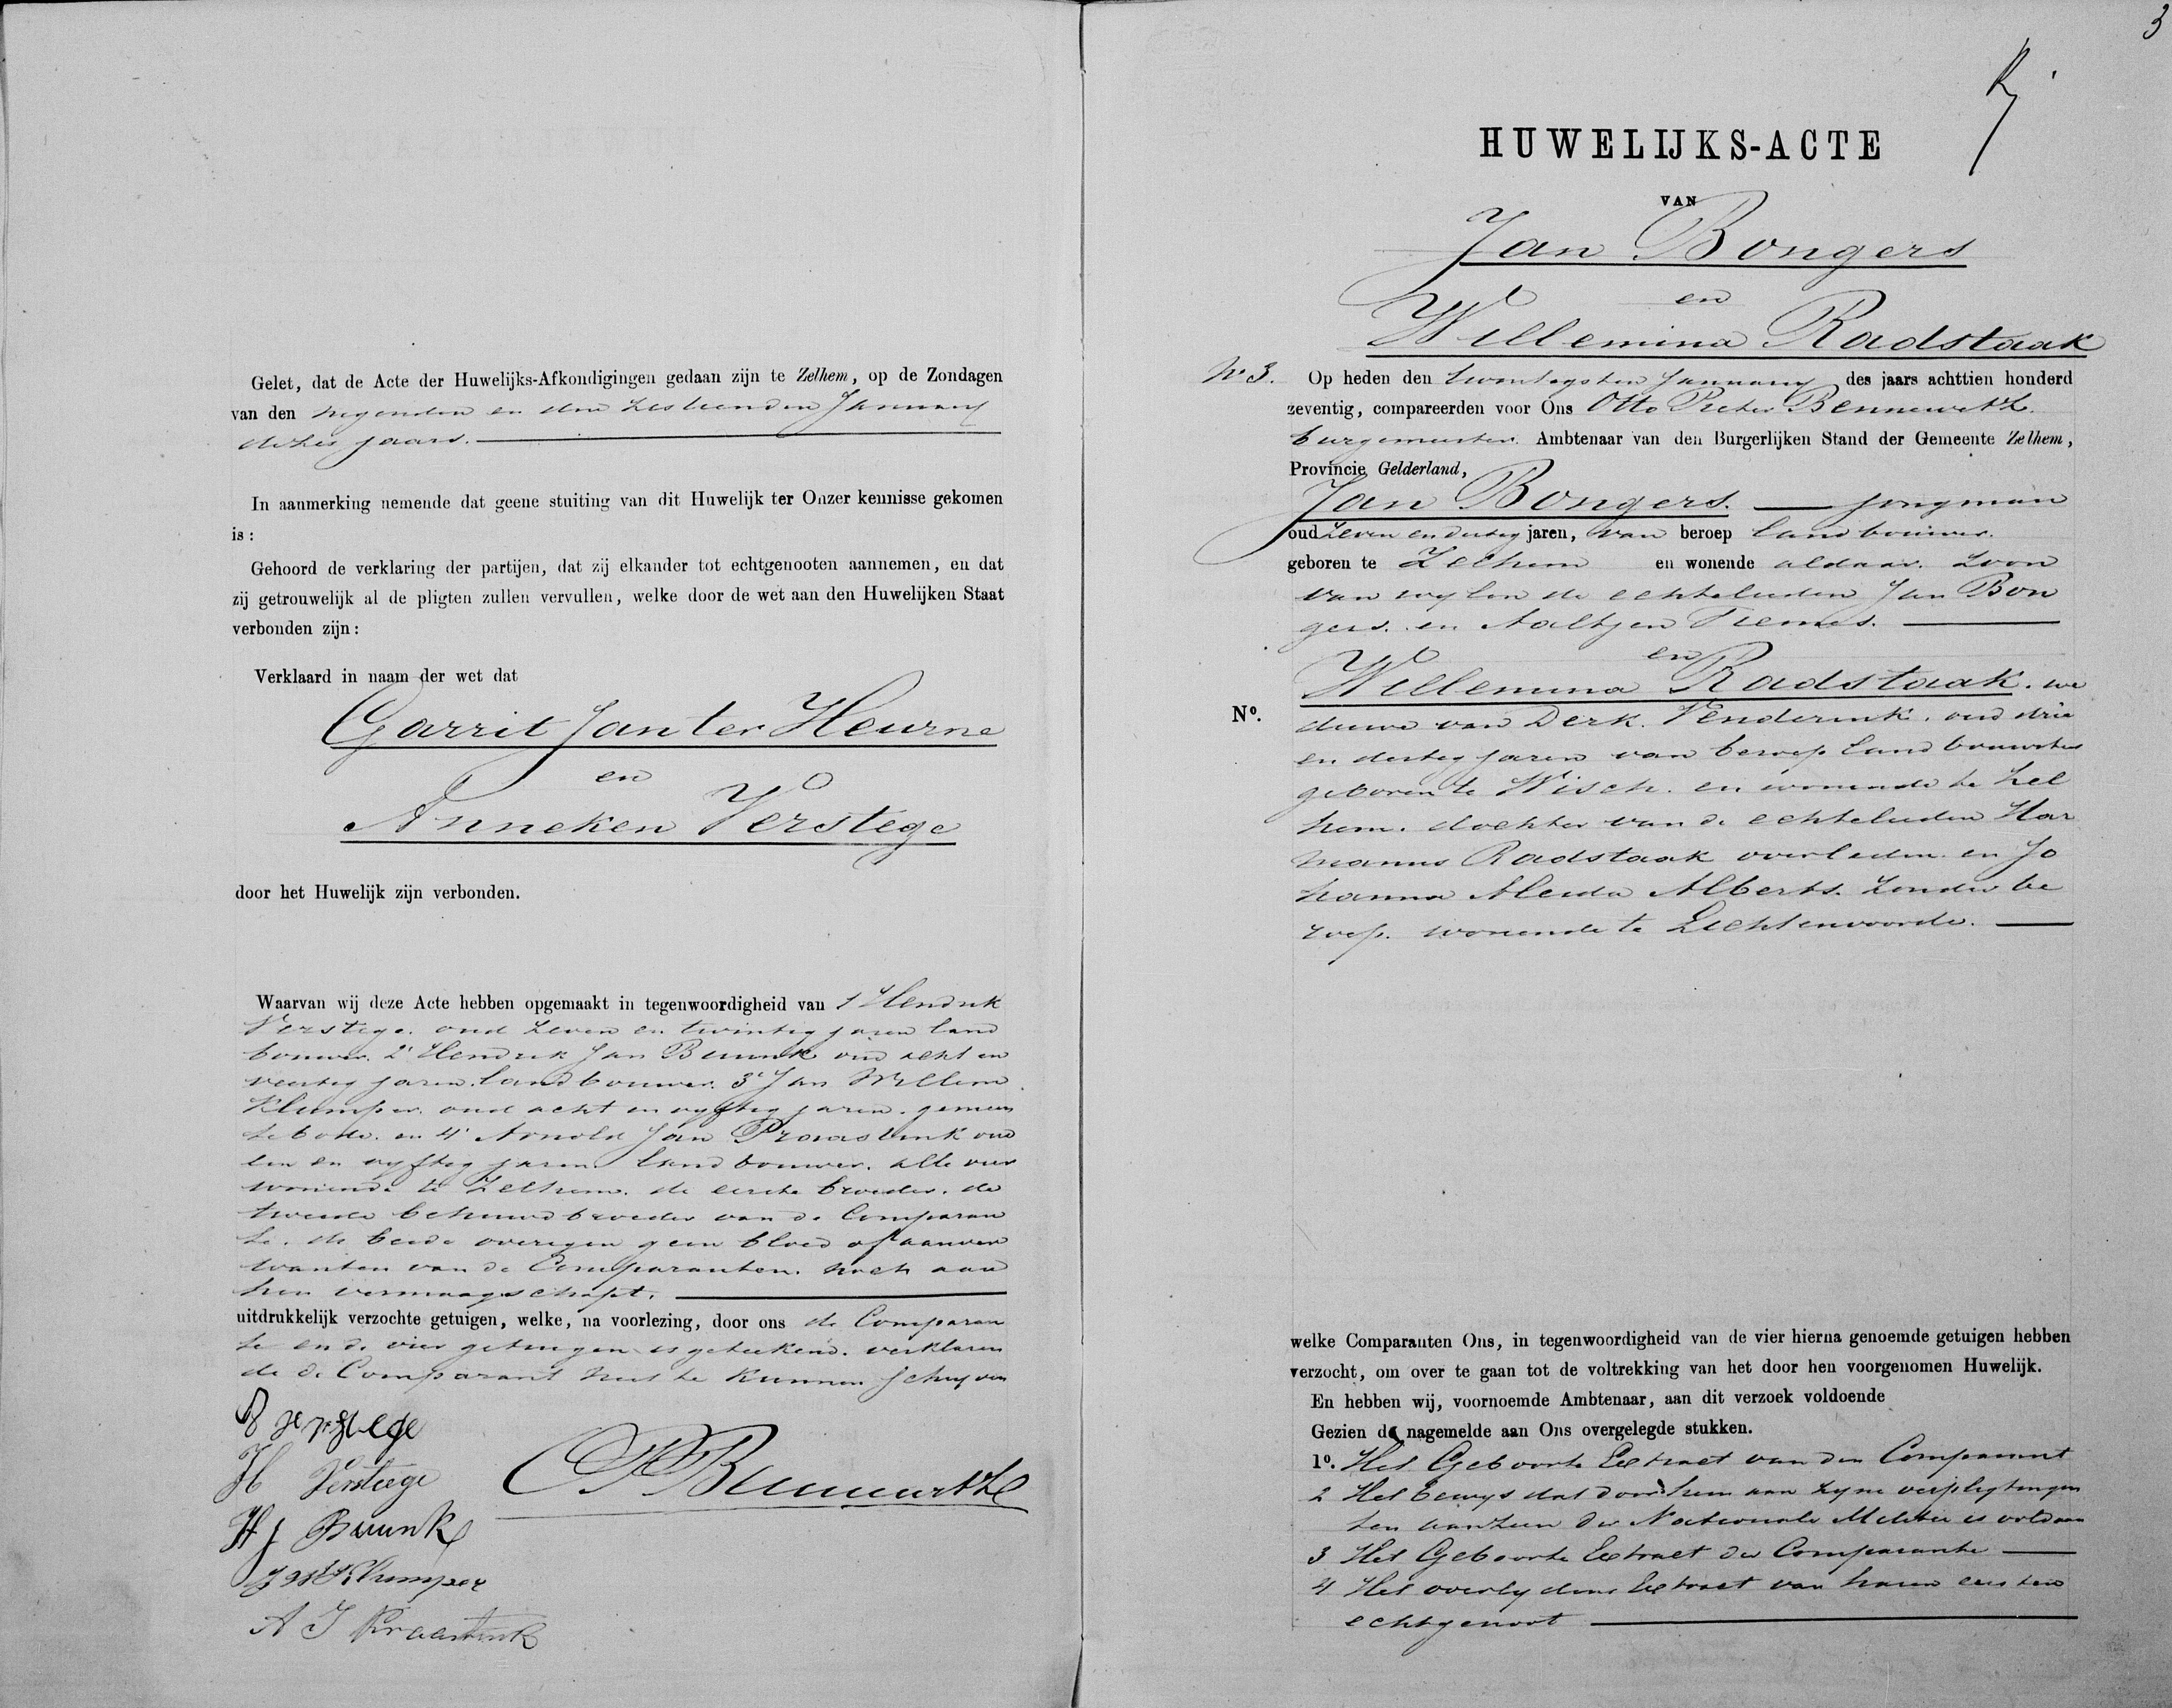 Gelet, dat de Acte der Huwelijks-Afkondigingen gedaan zijn te Zelhem, op de Zondagen
van den negenden en den zestienden January
dezes jaars.
In aanmerking nemende dat geene stuiting van dit Huwelijk ter Onzer kennisse gekomen
is:
Gehoord de verklaring der partijen, dat zij elkander tot echtgenooten aannemen, en dat
zij getrouwelijk al de pligten zullen vervullen, welke door de wet aan den Huwelijken Staat
verbonden zijn:
Verklaard in naam der wet dat
Garrit Jan ter Heurne
en
Anneken Verstege
door het Huwelijk zijn verbonden.
Waarvan wij deze Acte hebben opgemaakt in tegenwoordigheid van 1 Hendrik
Verstege. oud zeven en twintig jaren land
bouwer. 2' Hendrik Jan Buunk oud acht en
veertig jaren. landbouwer. 3' Jan Willem
Klumper. oud acht en vyftig jaren. gemeen
tebode. en 4' Arnold Jan Praastink oud
een en vyftig jaren landbouwer. alle vier
wonende te Zelhem. de eerste broeder. de
tweede behuwdbroeder van de Comparan
te. de beide overigen geen bloed of aanver
wanten van de Comparanten. noch aan
hen vermaagschapt.
uitdrukkelijk verzochte getuigen, welke, na voorlezing, door ons de Comparan
te en de vier getuigen is geteekend. verklaren
de de Comparant niet te kunnen schryven
H Verstege
H J Buunk
J W Klumper
A J Praastink
OPBennewitz
3
HUWELIJKS-ACTE
VAN
Jan Bongers
en
Willemina Radstaak
No 3. Op heden den twintigsten January des jaars achttien honderd
zeventig, compareerden voor Ons Otto Pieter Bennewitz.
burgemeester. Ambtenaar van den Burgerlijken Stand der Gemeente Zelhem,
Provincie Gelderland,
Jan Bongers. jongman
oud zeven en dertig jaren, van beroep landbouwer.
geboren te Zelhem en wonende aldaar. zoon
van wylen de echtelieden Jan Bon
gers. en Aaltjen Tiemes.
en
Willemina Radstaak. we
No. duwe van Derk. Venderink. oud drie
en dertig jaren van beroep landbouwster
geboren te Wisch. en wonende te Zel
hem. dochter van de echtelieden Har
manus Radstaak overleden. en Jo
hanna Aleida Alberts. zonder be
roep. wonende te Lichtenvoorde.
welke Comparanten Ons, in tegenwoordigheid van de vier hierna genoemde getuigen hebben
verzocht, om over te gaan tot de voltrekking van het door hen voorgenomen Huwelijk.
En hebben wij, voornoemde Ambtenaar, aan dit verzoek voldoende
Gezien de nagemelde aan Ons overgelegde stukken.
1o. Het Geboorte Extract van den Comparant
2 Het bewys dat door hem aan zyne verpligtingen
ten aanzien der Nationale Militie is voldaan
3 Het Geboorte Extract der Comparante
4 Het overlydens Extract van haren eersten
echtgenoot